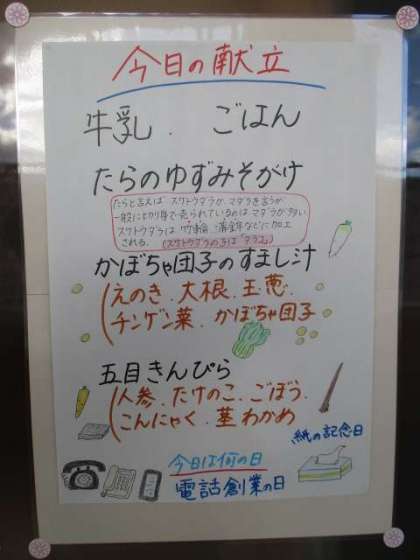 今日の献立
牛乳. ごはん
たらのゆずみそがけ
たらと言えば スケトウダラか、マダラを言うが
一般に切り身で売られているのは マダラが多い
スケトウダラは 竹輪・蒲鉾などに加工
される. (スケトウダラの子は「タラコ」)
かぼちゃ団子のすまし汁
(えのき. 大根. 玉葱.
チンゲン菜. かぼちゃ団子
五目きんぴら
(人参. たけのこ. ごぼう.
こんにゃく. 茎わかめ
紙の記念日
今日は何の日
電話創業の日